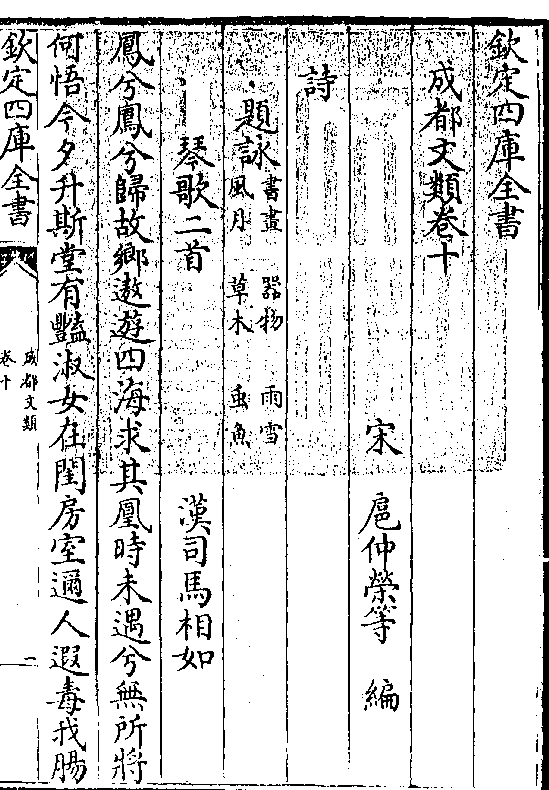 欽定四庫全書
成都文類卷十
宋 扈仲榮等 編
詩
題詠 書畫 器物 雨雪
風月 草木 蟲魚
琴歌二首 漢司馬相如
鳳兮鳳兮歸故鄉遨遊四海求其凰時未遇兮無所將
何悟今夕升斯堂有豔淑女在閨房室邇人遐毒我腸
欽定四庫全書
成都文類
卷十
一